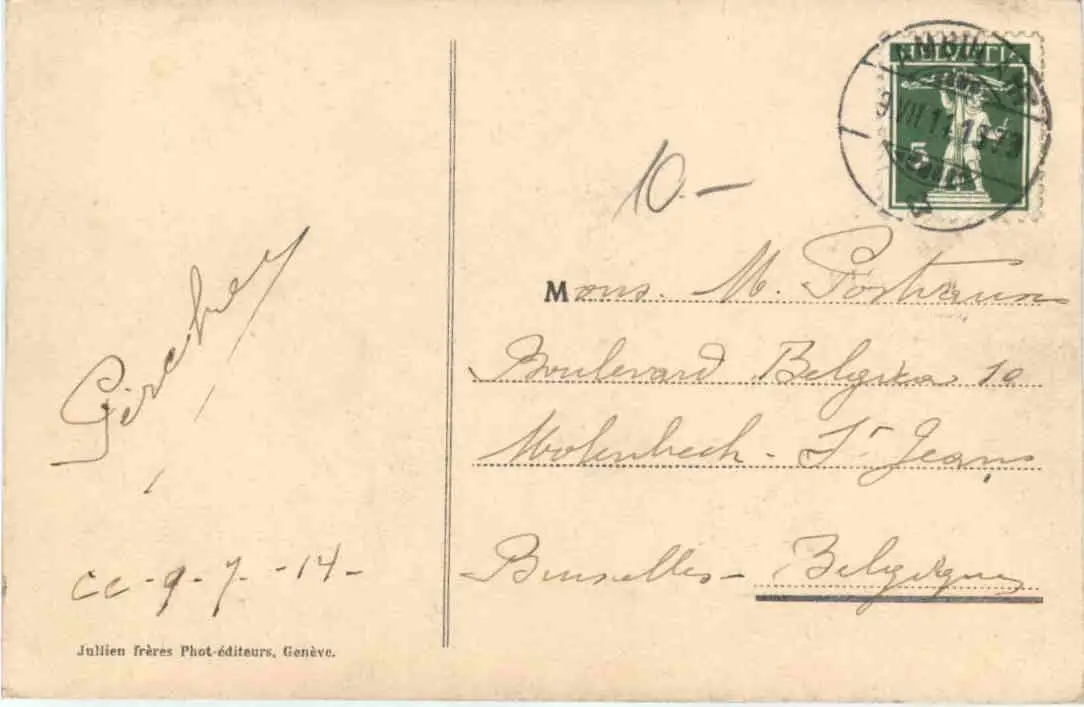 HELVETIA
5
10.-
Mons. M.
Boulevard Belgica 10
Molenbeek - St Jean
Bruxelles - Belgique
cc - 9 - 7 - -14 -
Jullien frères Phot-éditeurs, Genève.